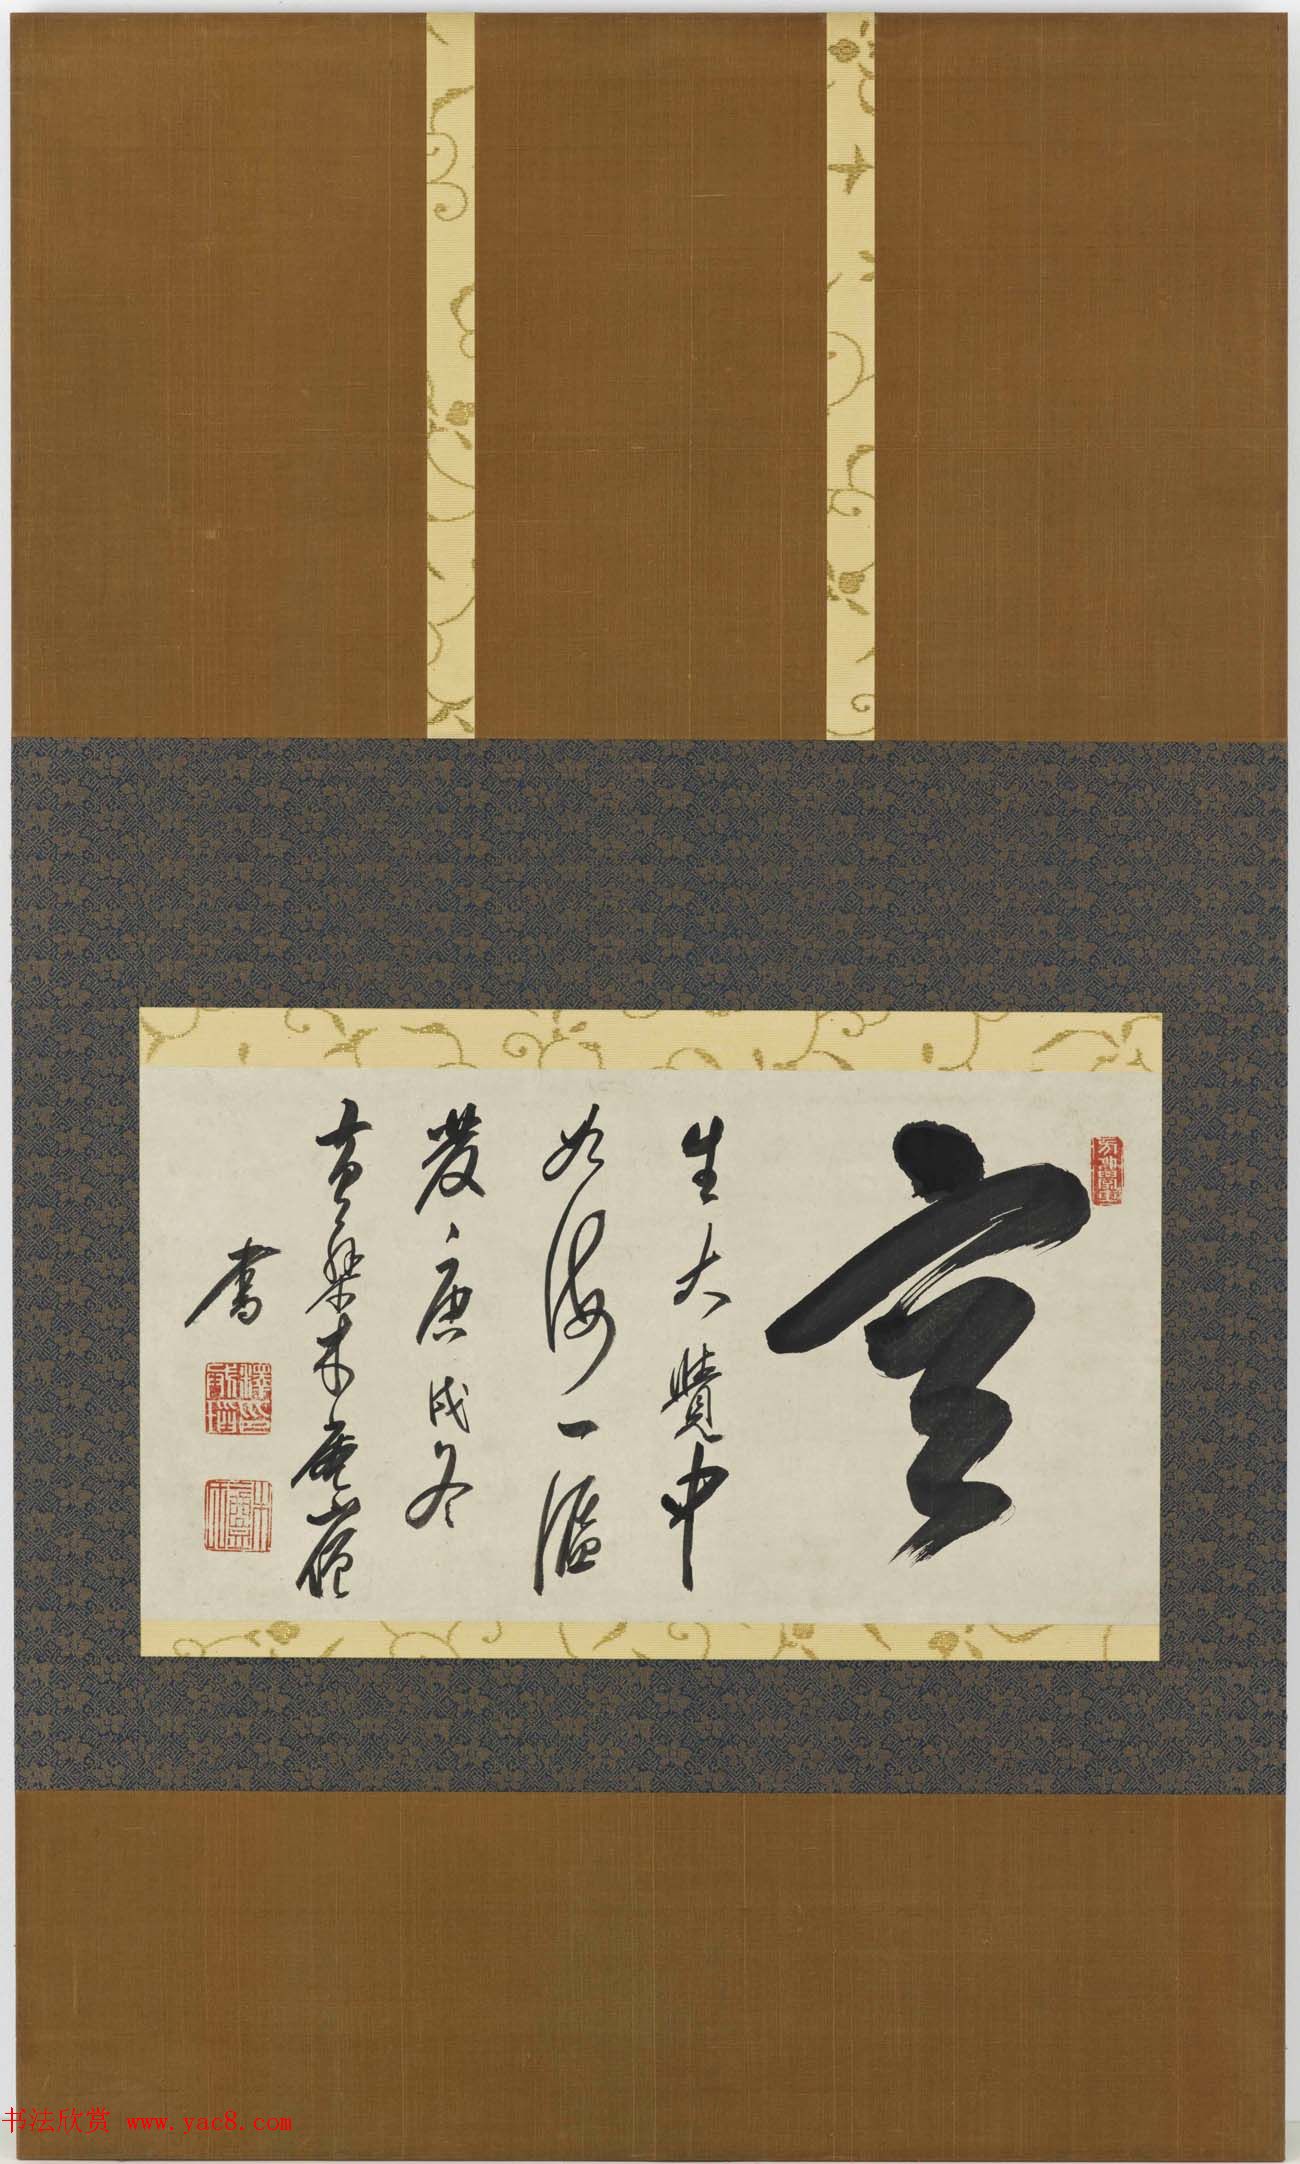 空
生大覺中
如海一漚
發庚戌冬
黃檗木庵山僧
書
书法欣赏 www.yac8.com